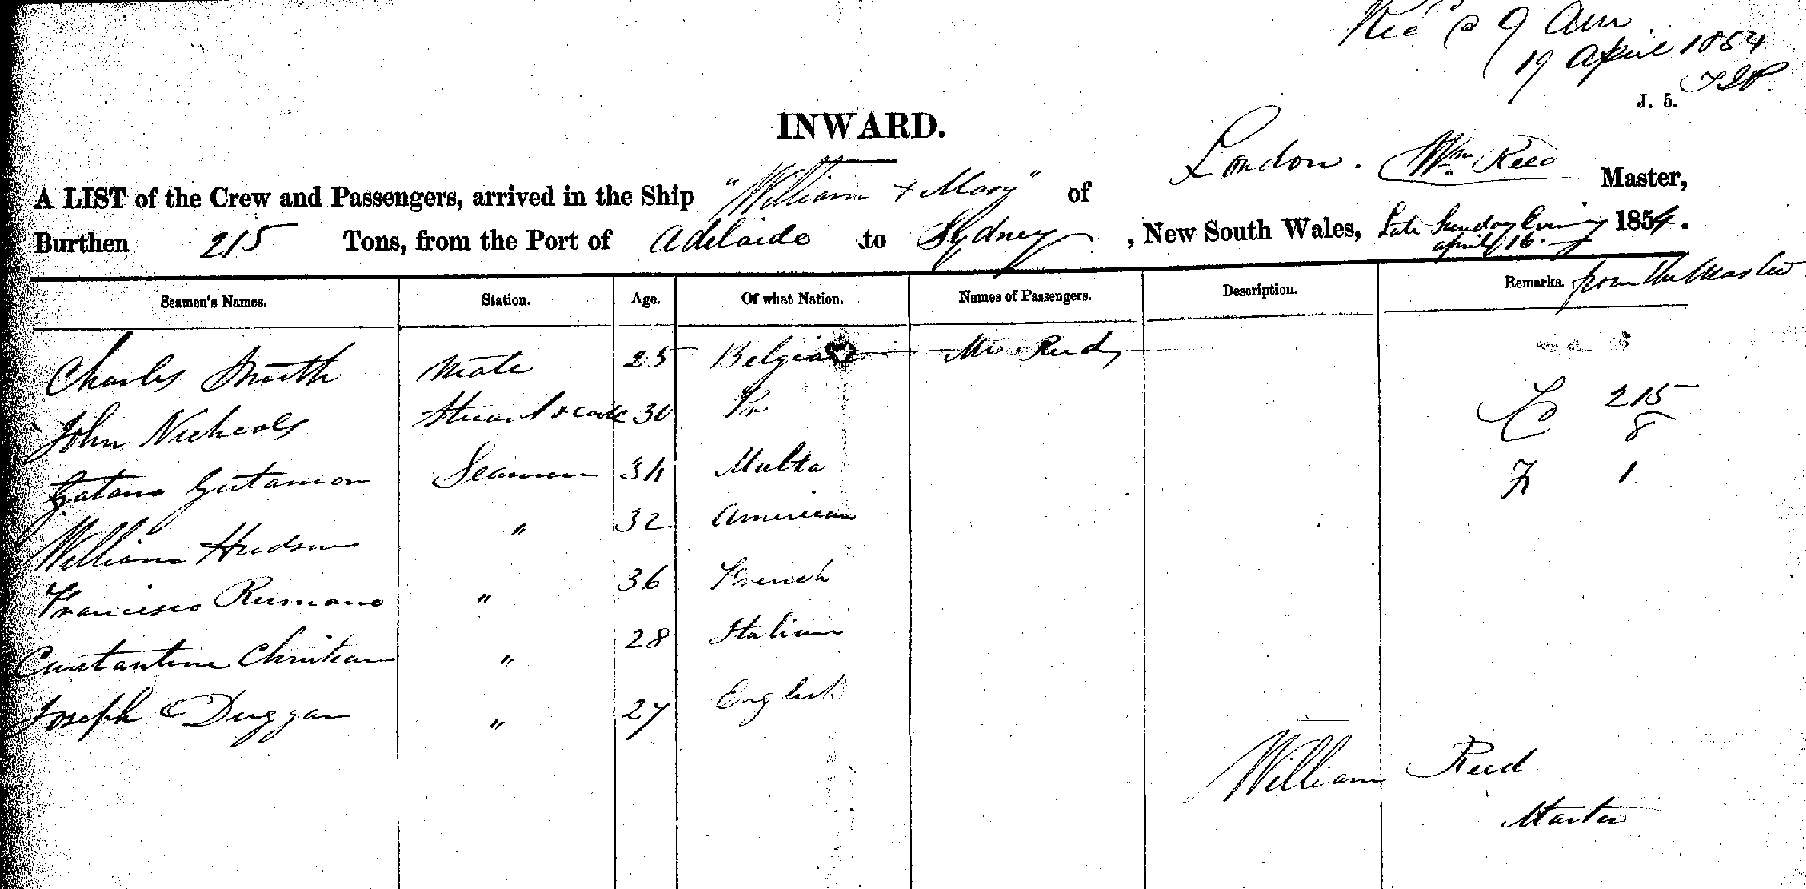 Recd @ 9 Am
19 April 1854
J. 5.
INWARD.
A LIST of the Crew and Passengers, arrived in the Ship "William & Mary" of London. Wm Reed Master,
Burthen 215 Tons, from the Port of Adelaide to Sydney, New South Wales, Late Sunday Evening April 16. 1854.
Seamen's Names. Station. Age. Of what Nation. Names of Passengers. Description. Remarks. from the Master
Charles Smith Mate 25 Belgian Mrs Reed
John Nicheols Stuard & Cook 30 Do 215
8
Seaman 34 Malta 1
William Hudson " 32 American
Francisco Rumano " 36 French
Constantine Christian " 28 Italian
Joseph Duggan " 27 English
William Reed
Master